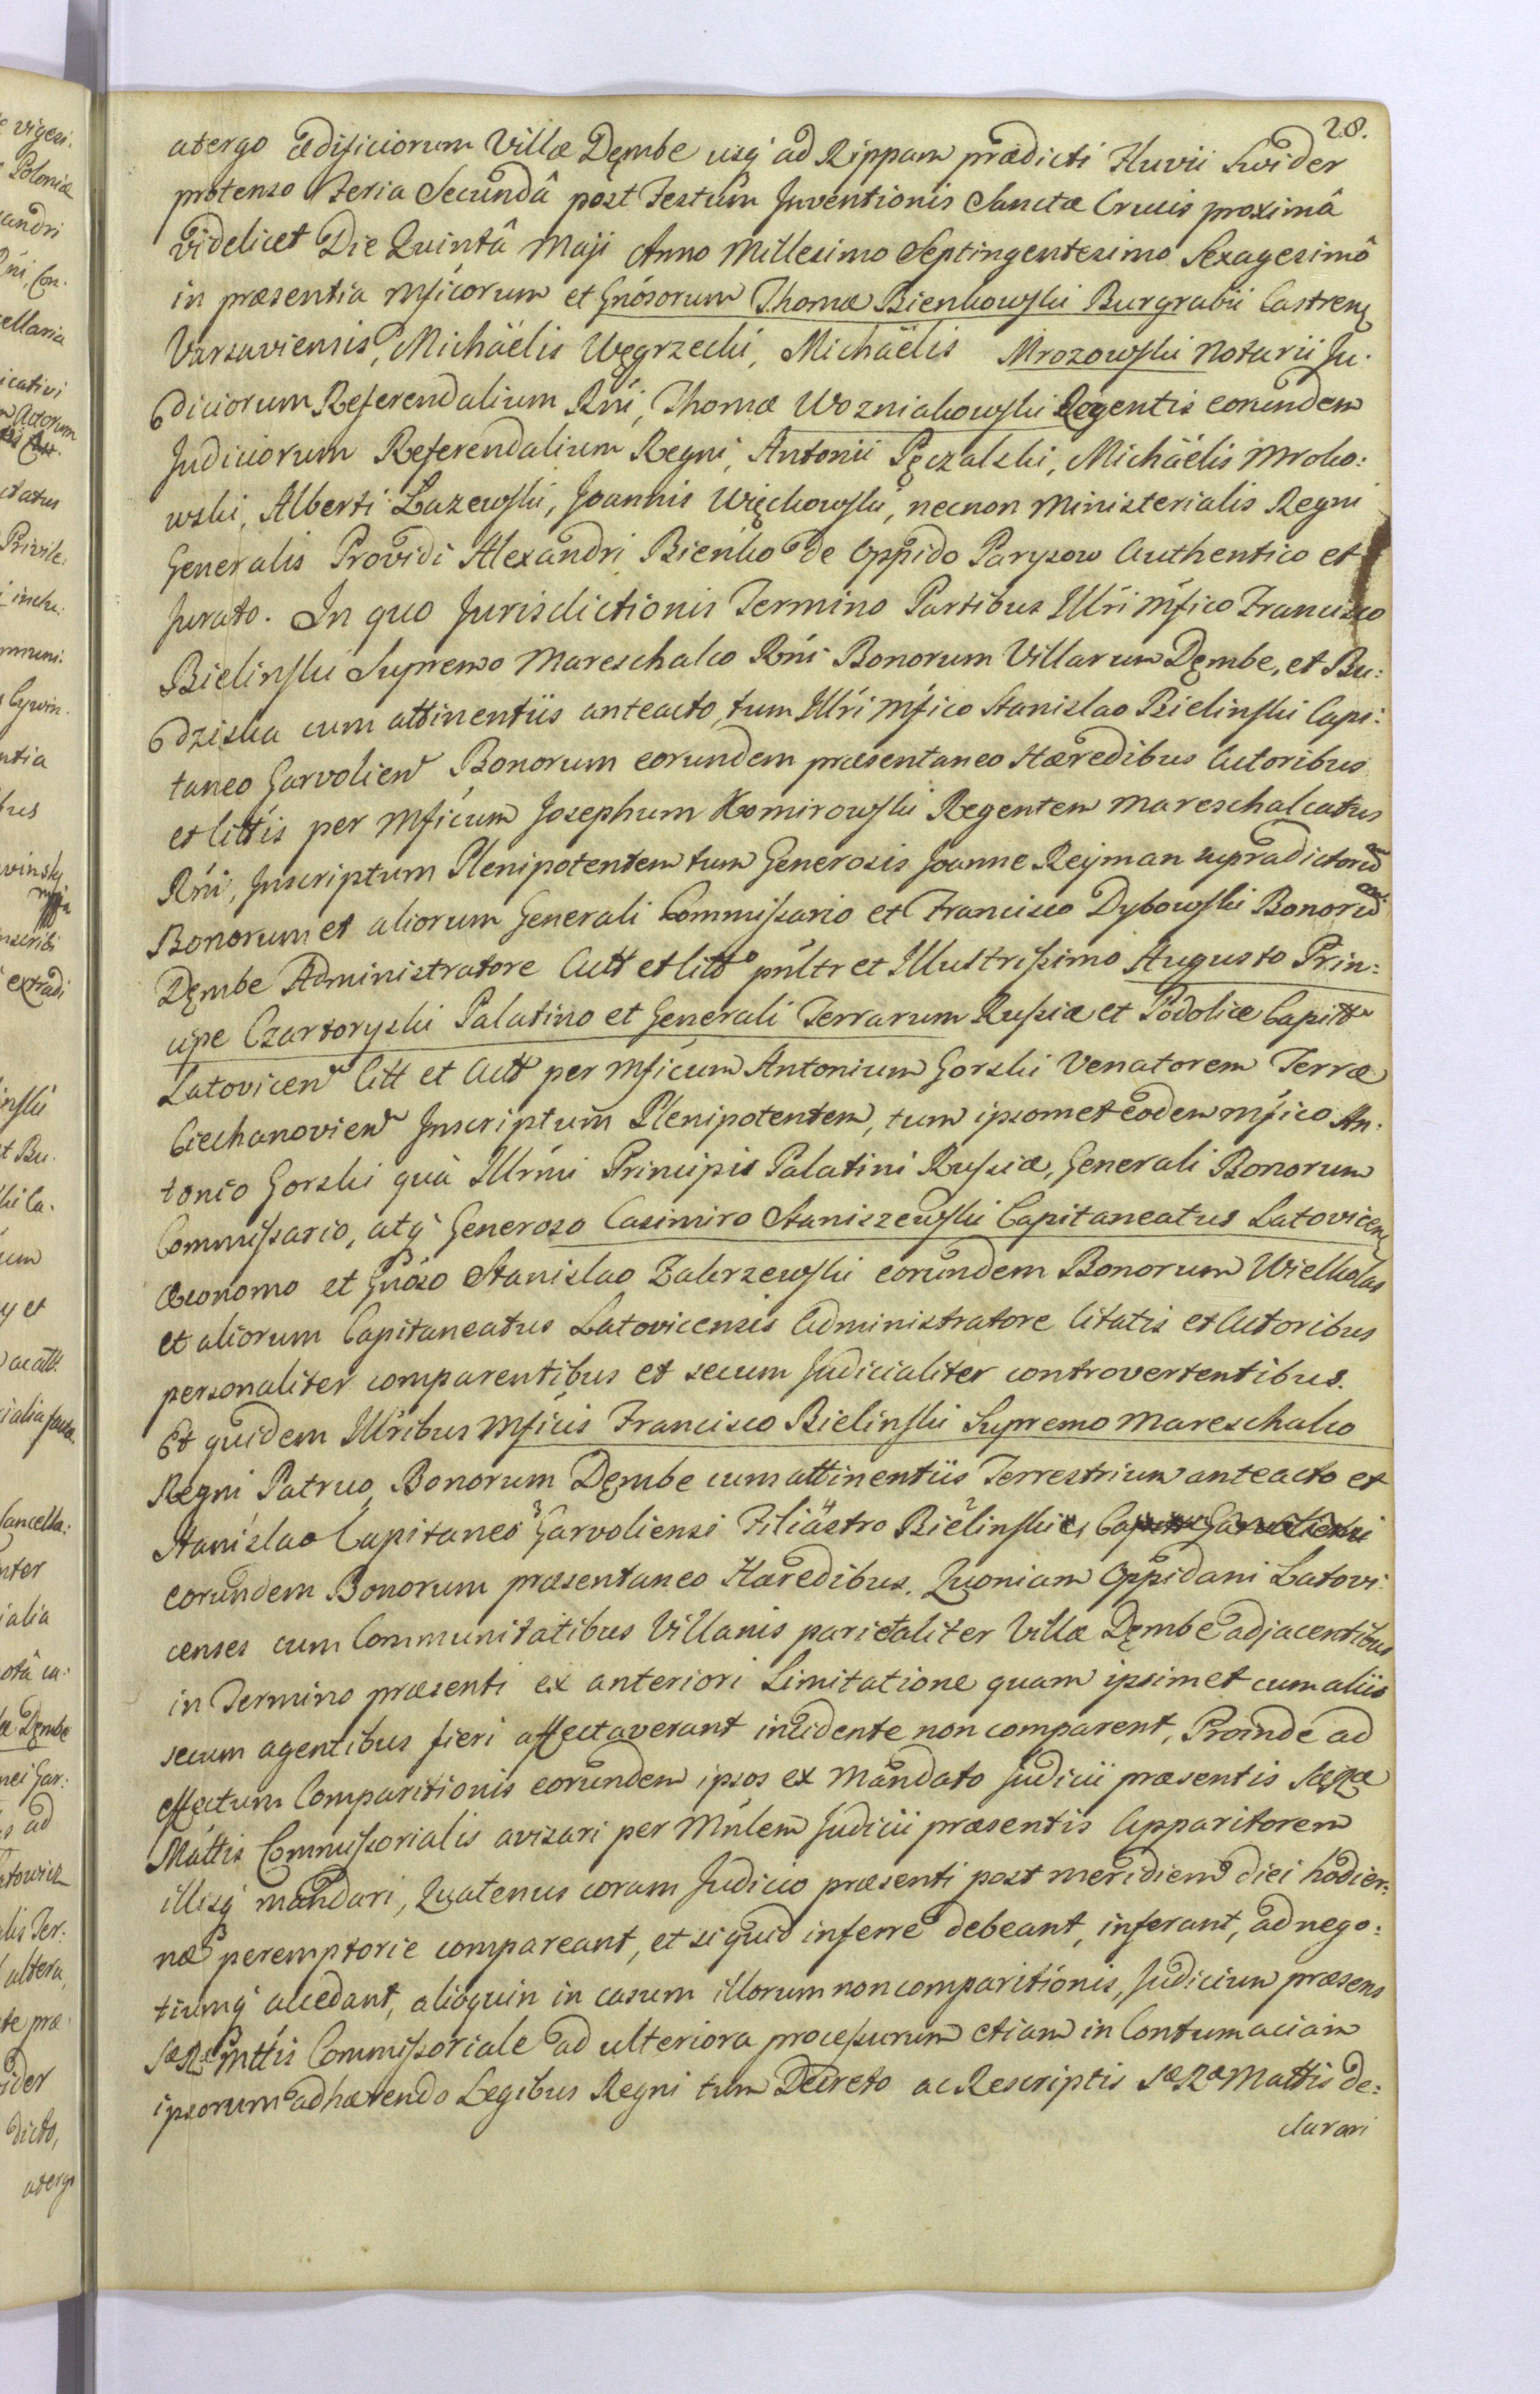 28.
atergo ædificiorum Villæ Dęmbe usq' ad Rippam prædicti Fluvii Swider
protenso Feria Secundâ post Festum Inventionis Sanctæ Crucis proximâ
videlicet Die Quintâ Maji Anno Millesimo Septingentesimo Sexagesimô
in præsentia Mficorum et Gnosorum Thomæ Bienkowski Burgrabii Castren
Varsaviensis, Michäelis Węgrzecki, Michäelis Mrozowski Notarii Ju:
diciorum Referendalium Rńi, Thomæ Wozniakowski Regentis eorundem
Judiciorum Referendalium Regni, Antonii Pęczalski, Michäelis Mroko:
wski, Alberti Łazewski, Joannis Więckowski, necnon Ministerialis Regni
Generalis Providi Alexandri Bieńko de Oppido Parysow Authentico et
Jurato. In quo Jurisdictionis Termino Partibus Illri Mfico Francisco
Bielinski Supremo Mareschalco Rńi Bonorum Villarum Dęmbe, et Bu:
dziska cum attinentiis anteacto, tum Illri Mfico Stanislao Bielinski Capi:
taneo Garvolien Bonorum eorundem præsentaneo Hæredibus Actoribus
et Cittis per Mficum Josephum Komirowski Regentem Mareschalcatus
Rńi, Inscriptum Plenipotentem tum Generosis Joanne Rejman supradictorum
Bonorum et aliorum Generali Commissario et Francisco Dybowski Bonorum
Dęmbe Administratore Actt et Citto pnltr et Illustrissimo Augusto Prin:
cipe Czartoryski Palatino et Generali Terrarum Russiæ et Podoliæ Capitt
Latovicen Citt et Actt per Mficum Antonium Gorski Venatorem Terræ
Ciechanovien Inscriptum Plenipotentem, tum ipsomet eodem Mfico An:
tonio Gorski quà Illrmi Principis Palatini Russiæ, Generali Bonorum
Commissario, atq' Generoso Casimiro Staniszewski Capitaneatus Latovicen
Œconomo et Gnoso Stanislao Zakrzewski eorundem Bonorum Wielkolas
et aliorum Capitaneatus Latovicensis Administratore Citatis et Actoribus
personaliter comparentibus et secum Judicialiter controvertentibus.
Et quidem Illribus Mficis Francisco Bielinski Supremo Mareschalco
Regni Patruo, Bonorum Dęmbe cum attinentiis Terrestrium anteacto et
Stanislao Capitaneo Garvoliensi Filiastro Bielinski
eorundem Bonorum præsentaneo Hæredibus. Quoniam Oppidani Latovi:
censes cum Communitatibus Villanis parietaliter Villæ Dęmbe adjacentibus
in Termino præsenti ex anteriori Limitatione quam ipsimet cum aliis
secum agentibus fieri affectaverant incidente non comparent, Proinde ad
effectum Comparitionis eorundem ipsos ex Mandato Judicii præsentis SæRæ
Mattis Commissorialis avisari per Mnlem Judicii præsentis Apparitorem
illisq' mandari, Quatenus coram Judicio præsenti post meridiem diei hodier:
næ peremptorie compareant, et si quid inferre debeant, inferant, ad nego:
tiumq' accedant, alioquin in casum illorum non comparitionis, Judicium præsens
SæRæ Mttis Commissoriale ad ulteriora processurum etiam in Contumaciam
ipsorum adhærendo Legibus Regni tum Decreto ac Rescriptis SæRæ Mattis de:
clarari